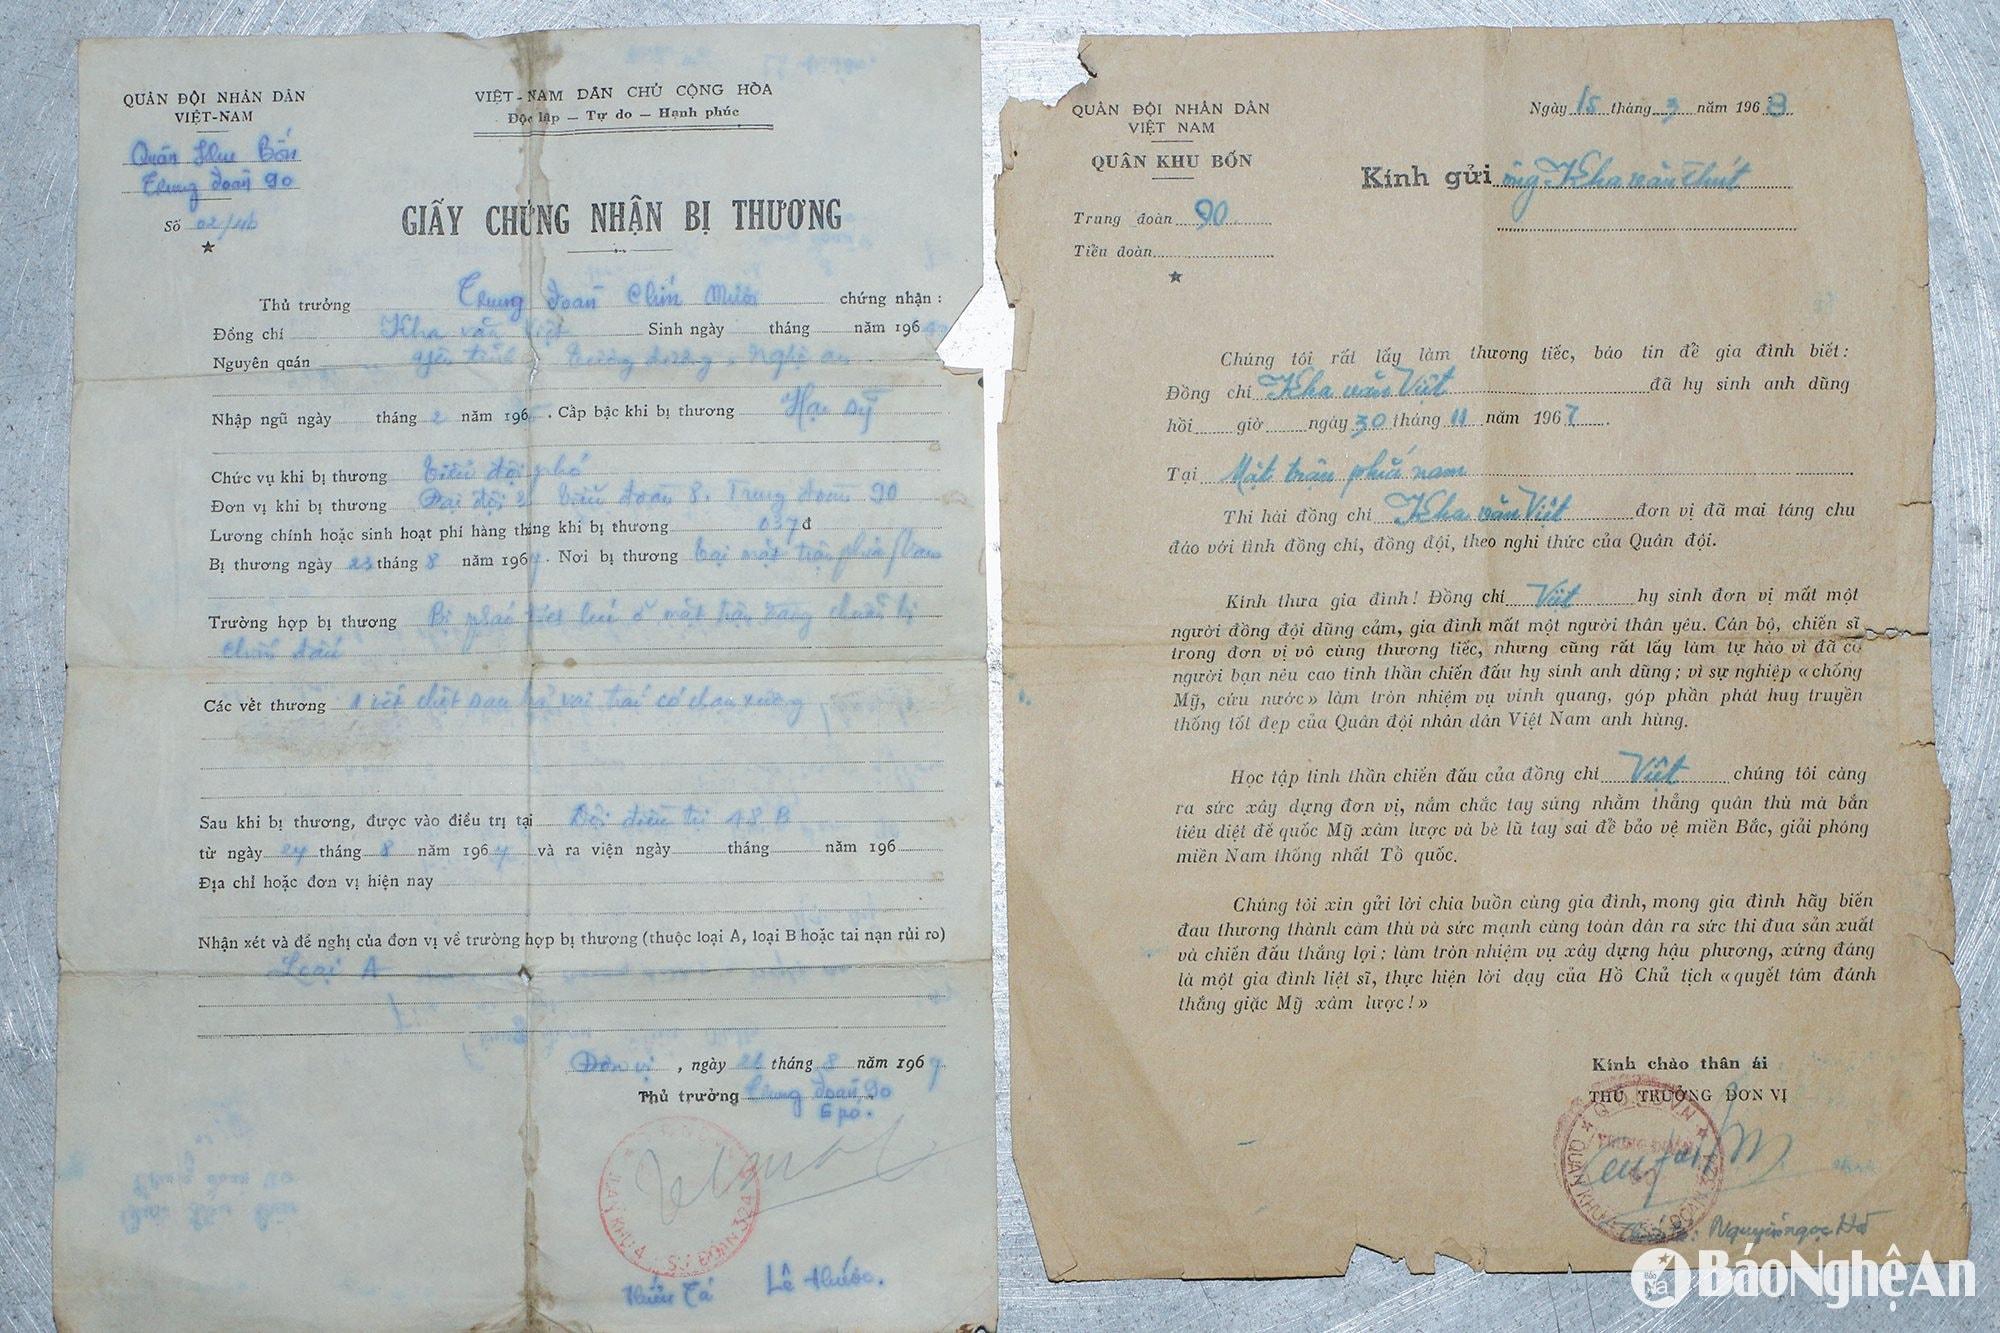 QUÂN ĐỘI NHÂN DÂN
VIỆT-NAM
Quân Khu Bốn
Trung đoàn 90
Số 02/
VIỆT-NAM DÂN CHỦ CỘNG HÒA
Độc lập — Tự do — Hạnh phúc
GIẤY CHỨNG NHẬN BỊ THƯƠNG
Thủ trưởng Trung đoàn Chín Mươi chứng nhận :
Đồng chí Kha văn Việt Sinh ngày tháng năm 196
Nguyên quán Yên tĩnh, tương dương, Nghệ an
Nhập ngũ ngày tháng 2 năm 196 . Cấp bậc khi bị thương Hạ sỹ
Chức vụ khi bị thương Tiểu đội phó
Đơn vị khi bị thương Đại đội 3 Tiểu đoàn 8. Trung đoàn 90
Lương chính hoặc sinh hoạt phí hàng tháng khi bị thương 037đ
Bị thương ngày 23 tháng 8 năm 1967. Nơi bị thương tại mặt trận phía Nam
Trường hợp bị thương Bị pháo lúc ở mặt trận đang chuẩn bị
chiến đấu
Các vết thương 1 vết thịt sau bả vai trái có chạm xương
Sau khi bị thương, được vào điều trị tại Đội điều trị 48 B
từ ngày 24 tháng 8 năm 1967 và ra viện ngày tháng năm 196
Địa chỉ hoặc đơn vị hiện nay
Nhận xét và đề nghị của đơn vị về trường hợp bị thương (thuộc loại A, loại B hoặc tai nạn rủi ro)
Loại A
Đơn vị , ngày 26 tháng 8 năm 1967
Thủ trưởng Trung đoàn 90
QUÂN KHU 4 SƯ ĐOÀN 324
Thiếu Tá Lê Thước.
QUÂN ĐỘI NHÂN DÂN
VIỆT NAM
QUÂN KHU BỐN
Trung đoàn 90
Tiểu đoàn
Ngày 15 tháng 3 năm 1968
Kính gửi ông Kha văn Thút
Chúng tôi rất lấy làm thương tiếc, báo tin để gia đình biết :
Đồng chí Kha văn Việt đã hy sinh anh dũng
hồi giờ ngày 30 tháng 11 năm 1967.
Tại Mặt trận phía nam
Thi hài đồng chí Kha văn Việt đơn vị đã mai táng chu
đáo với tình đồng chí, đồng đội, theo nghi thức của Quân đội.
Kính thưa gia đình ! Đồng chí Việt hy sinh đơn vị mất một
người đồng đội dũng cảm, gia đình mất một người thân yêu. Cán bộ, chiến sĩ
trong đơn vị vô cùng thương tiếc, nhưng cũng rất lấy làm tự hào vì đã có
người bạn nêu cao tinh thần chiến đấu hy sinh anh dũng ; vì sự nghiệp « chống
Mỹ, cứu nước » làm tròn nhiệm vụ vinh quang, góp phần phát huy truyền
thống tốt đẹp của Quân đội nhân dân Việt Nam anh hùng.
Học tập tinh thần chiến đấu của đồng chí Việt chúng tôi càng
ra sức xây dựng đơn vị, nắm chắc tay súng nhằm thẳng quân thù mà bắn
tiêu diệt đế quốc Mỹ xâm lược và bè lũ tay sai để bảo vệ miền Bắc, giải phóng
miền Nam thống nhất Tổ quốc.
Chúng tôi xin gửi lời chia buồn cùng gia đình, mong gia đình hãy biến
đau thương thành căm thù và sức mạnh cùng toàn dân ra sức thi đua sản xuất
và chiến đấu thắng lợi ; làm tròn nhiệm vụ xây dựng hậu phương, xứng đáng
là một gia đình liệt sĩ, thực hiện lời dạy của Hồ Chủ tịch « quyết tâm đánh
thắng giặc Mỹ xâm lược ! »
Kính chào thân ái
THỦ TRƯỞNG ĐƠN VỊ
Q.Đ.N.D.V.N
TRUNG ĐOÀN
QUÂN KHU SƯ ĐOÀN 324
Nguyễn ngọc Hồ
Báo NA
BáoNghệAn